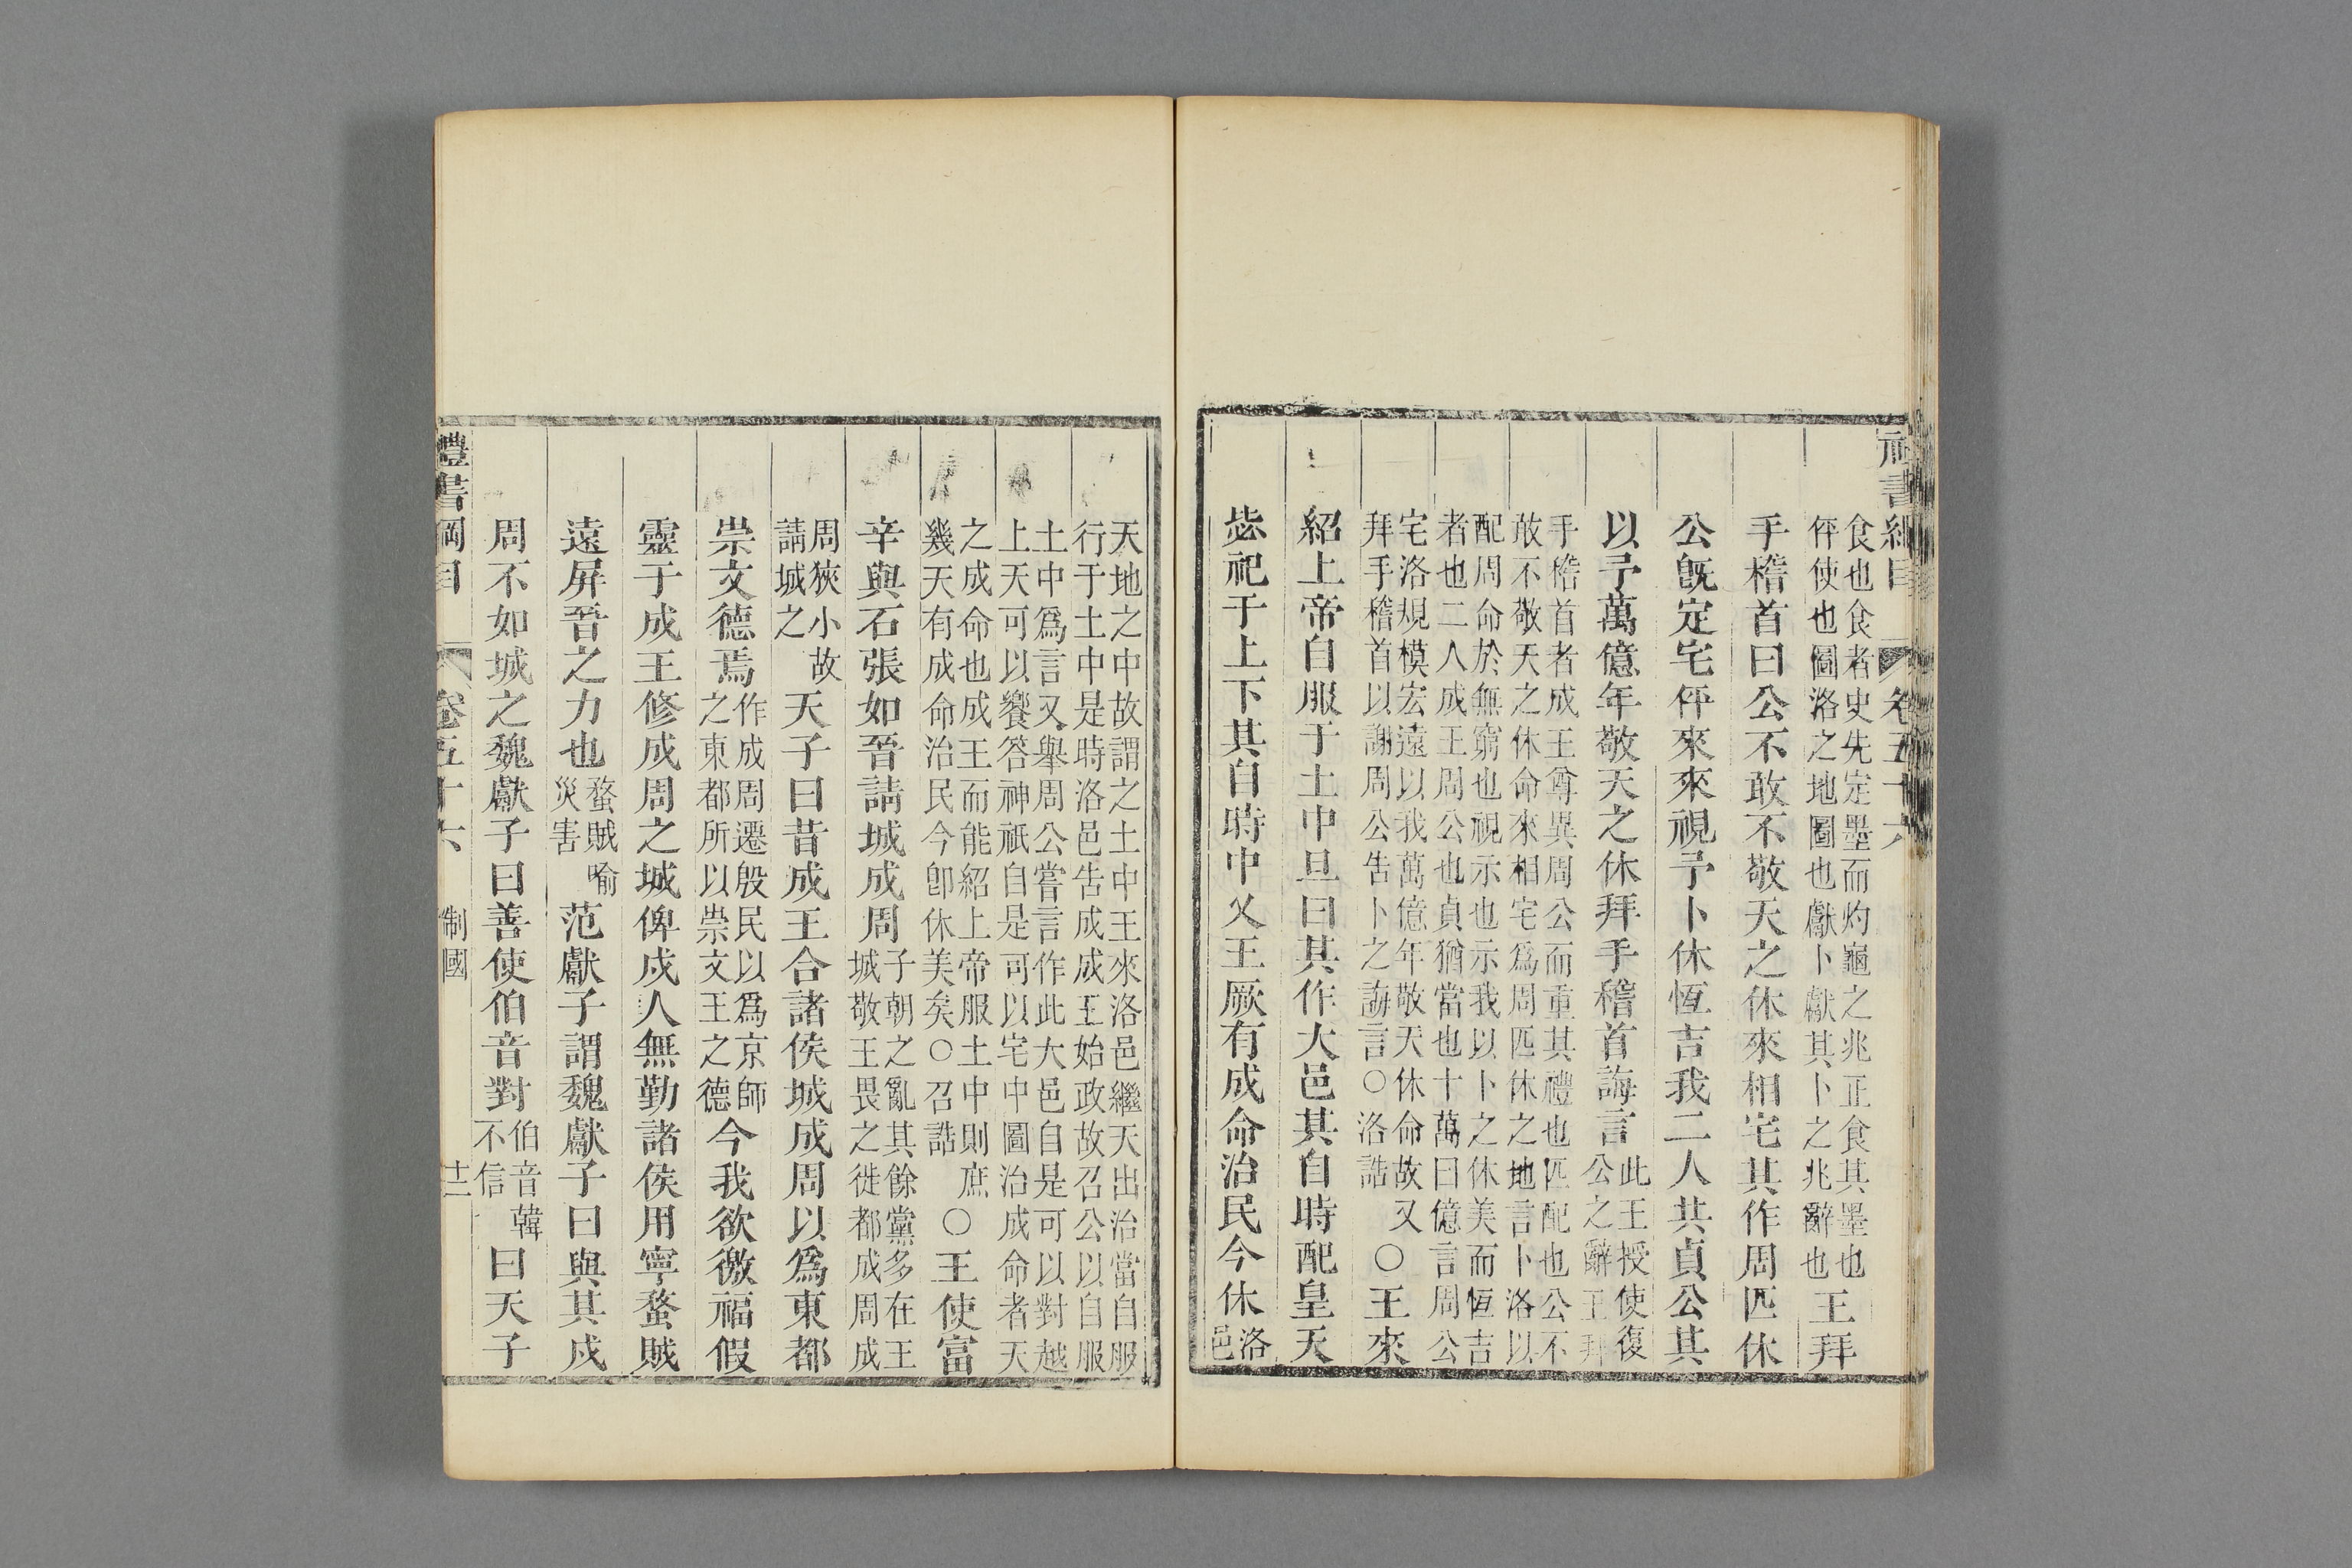 禮書綱目　卷五十六
食也食者史先定墨而灼龜之兆正食其墨也
伻使也圖洛之地圖也獻卜獻其卜之兆辭也王拜
手稽首曰公不敢不敬天之休來相宅其作周匹休
公旣定宅伻來來視予卜休恆吉我二人共貞公其
以予萬億年敬天之休拜手稽首誨言此王授使復
公之辭王拜
手稽首者成王尊異周公而重其禮也匹配也公不
敢不敬天之休命來相宅爲周匹休之地言卜洛以
配周命於無窮也視示也示我以卜之休美而恆吉
者也二人成王周公也貞猶當也十萬曰億言周公
宅洛規模宏遠以我萬億年敬天休命故又
拜手稽首以謝周公告卜之誨言○洛誥○王來
紹上帝自服于土中旦曰其作大邑其自時配皇天
毖祀于上下其自時中乂王厥有成命治民今休洛
邑
天地之中故謂之土中王來洛邑繼天出治當自服
行于土中是時洛邑告成成王始政故召公以自服
土中爲言又舉周公嘗言作此大邑自是可以對越
上天可以饗答神祇自是可以宅中圖治成命者天
之成命也成王而能紹上帝服土中則庶
幾天有成命治民今卽休美矣○召誥○王使富
辛與石張如晉請城成周子朝之亂其餘黨多在王
城敬王畏之徙都成周成
周狹小故
請城之天子曰昔成王合諸侯城成周以爲東都
崇文德焉作成周遷殷民以爲京師
之東都所以崇文王之德今我欲徼福假
靈于成王修成周之城俾戍人無勤諸侯用寧蝥賊
遠屏晉之力也蝥賊喻
災害范獻子謂魏獻子曰與其戍
周不如城之魏獻子曰善使伯音對伯音韓
不信曰天子
禮書綱目　卷五十六　制國　十二